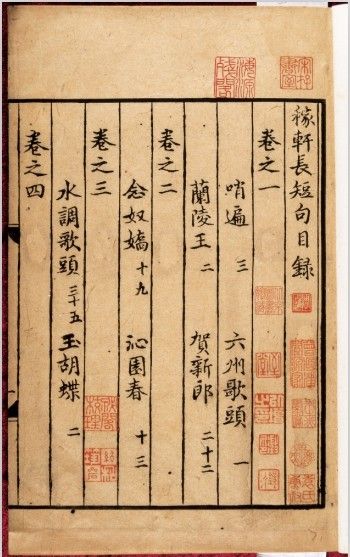 稼軒長短句目録
卷之一
哨遍 三 六州歌頭 一
蘭陵王 二 賀新郎 二十二
卷之二
念奴嬌 十九 沁園春 十三
卷之三
水調歌頭 三十五 玉胡蝶 二
卷之四